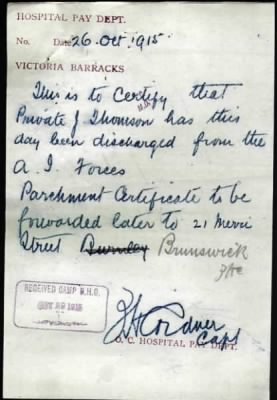 HOSPITAL PAY DEPT.
No. Date 26 Oct 1915
VICTORIA BARRACKS
This is to Certify that
Private J Thomson has this
day been discharged from the
A. I. Forces
Parchment Certificate to be
forwarded later to 21 Merri
Street Burnley Brunswick
RECEIVED CAMP
Capt
O. C. HOSPITAL PAY DEPT.